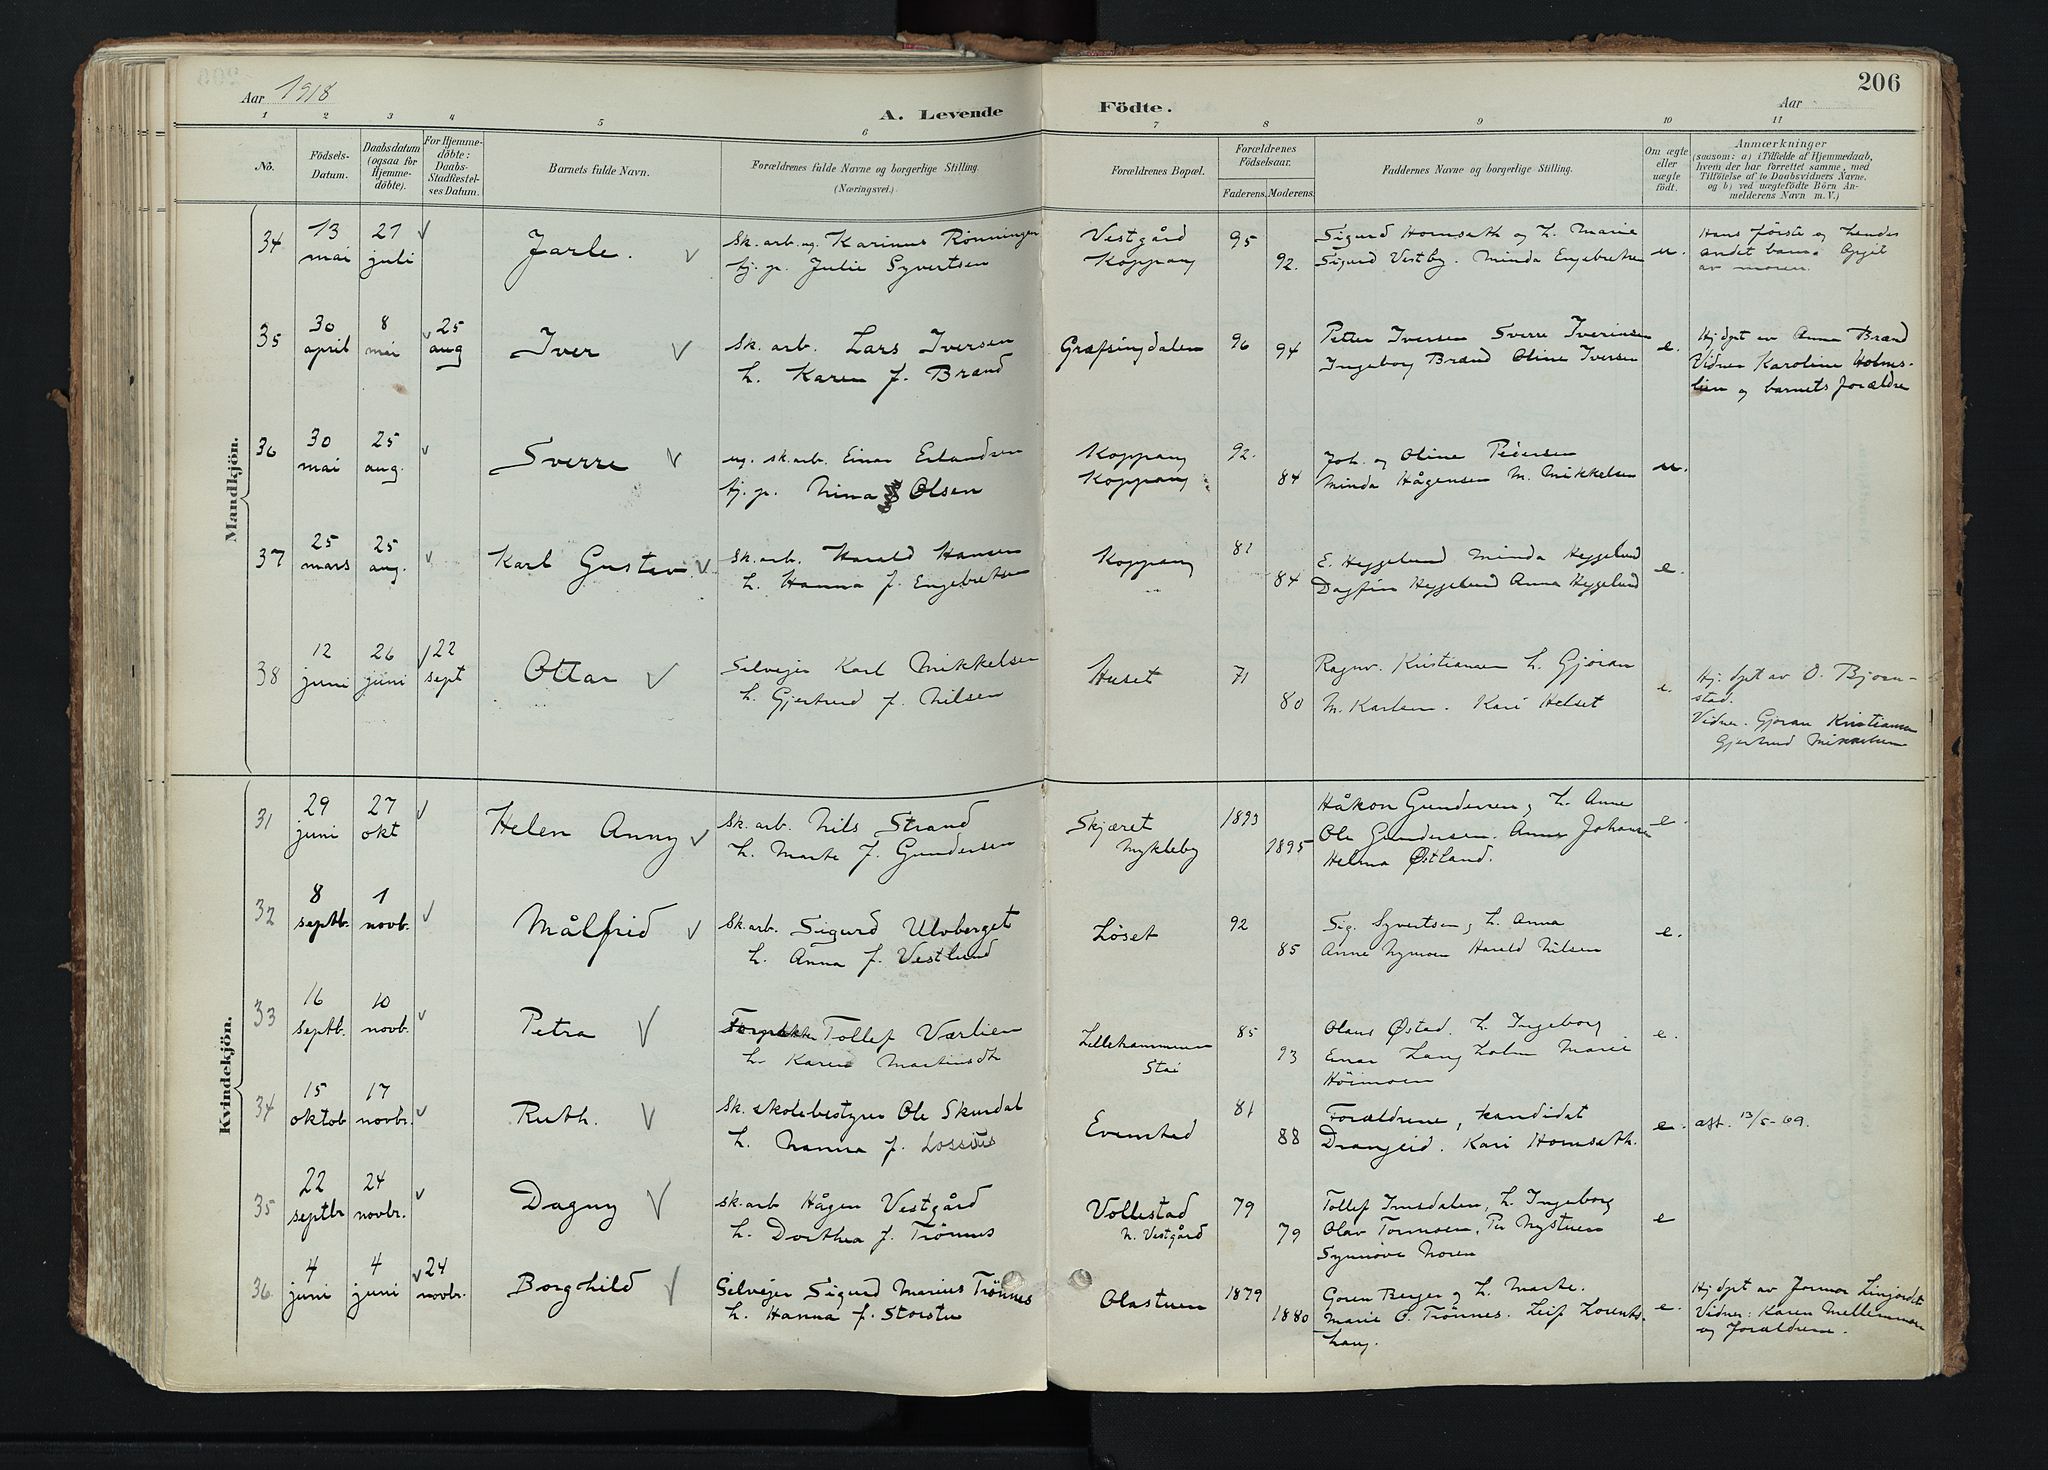 Aar 1918
A. Levende Födte.
Aar
206
1 2 3 4 5 6 7 8 9 10 11
No.
Födsels-Datum.
Daabsdatum (ogsaa for Hjemmedöbte).
For Hjemmedöbte: Daabs-Stadfæstelses Datum.
Barnets fulde Navn.
Forældrenes fulde Navne og borgerlige Stilling. (Næringsvei.)
Forældrenes Bopæl.
Forældrenes Födselsaar.
Faderens. Moderens.
Faddernes Navne og borgerlige Stilling.
Om ægte eller uægte födt.
Anmærkninger
(saasom: a) i Tilfælde af Hjemmedaab,
hvem der har forrettet samme, med
Tilföielse af to Daabsvidners Navne.
og b) ved uægtefödte Börn An-
melderens Navn m. V.)
Mandkjön.
34 13 mai 21 juli Jarle.
Sk. arb. ug. Karinus Rønningen
tj. p. Julie Syvertsen
Vestgård
Koppang
95 92.
Sigurd Hornsæth og h. Marie
Sigurd Vestby. Minda Engebretsen
u.
Hans første og hendes
andet barn. Opgit
av moren.
35 30 april 8 mai 25 aug Iver
Sk. arb. Lars Iversen
h. Karen f. Brænd
Græfsingdalen
96 94
Petter Iversen Sverre Iverinsen
Ingeborg Brænd Oline Iversen
e.
Hj. døpt av Anne Brænd
Vidner Karoline Holms-
lien og barnets forældre
36 30 mai 25 aug. Sverre
ug. sk. arb. Einar Erlandsen
tj. p. Nina Olsen
Koppang
Koppang
92. 84
Joh. og Oline Pedersen
Minda Hågensen M. Mikkelsen
u.
37 25 mars 25 aug. Karl Gustav.
Sk. arb. Harald Hansen
h. Hanna f. Engebretsen
Koppang
81 84
E. Heggelund Minda Heggelund
Dagfin Heggelund Anna Heggelund
e.
38 12 juni 26 juni 22 sept Ottar
Selveier Karl Mikkelsen
h. Gjertrud f. Nilsen
Huset
71 80
Ragnv. Kristiansen h. Gjøran
M. Karlsen. Kari Helset
e.
Hj. døpt av O. Bjørn-
stad.
Vidner. Gjøran Kristiansen
Gjertrud Mikkelsen
Kvindekjön.
31 29 juni 27 okt Helen Anny
Sk. arb. Nils Strand
h. Marte f. Gundersen
Skjæret
Mykleby
1893 1895
Håkon Gundersen, h. Anne
Ole Gundersen. Anna Johanse
Helma Østland.
e.
32 8 septb. 1 novb. Målfrid
Sk. arb. Sigurd Ulvberget
h. Anna f. Vestlund
Løset
92 85
Sig. Syvertsen, h. Anna
Anne Nymoen Harald Nilsen
e.
33 16 septb. 10 novb. Petra
Tollef Værlien
h. Karen Martinsdt
Lillehammer
Stai
85 93
Olaus Østad. h. Ingeborg
Einar Langholm Marie
Høimoen
e.
34 15 oktob 17 novbr. Ruth.
Sk. skolebestyrer Ole Skurdal
h. Nanna f. Lossius
Evenstad
81 88
Forældrene, kandidat
Drangeid. Kari Hornsæth.
e. att. 13/5-69.
35 22 septbr 24 novbr. Dagny
sk. arb Hågen Vestgård
h. Dorthea f. Trønnes
Vollestad
n. Vestgård
79 79
Tollef Imsdalen, h. Ingeborg
Olav Tormoen, Per Nystuen
Synnøve Moren
e
36. 4 juni 4 juni 24 novbr. Borghild
Selveier Sigurd Marius Trønnes
h. Hanna f. Storstu
Olastuen
1879 1880
Gøren Berger og h. Marte.
Marie O. Trønnes. Leif Lorents.
haug.
e.
Hj. døpt av Jormor Linjordet
Vidner: Karen Mellemmoen
og forældrene.